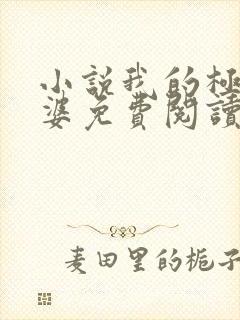 小說我的極
婆免費閱讀
麦田里的栀子